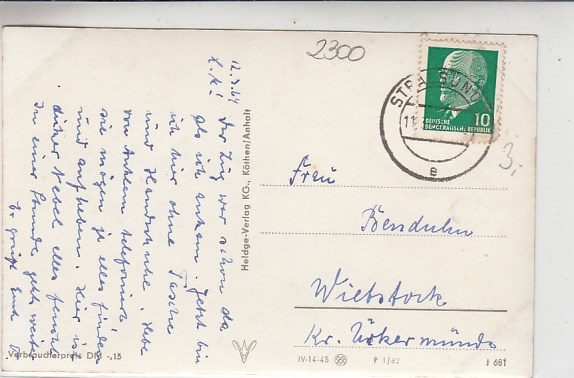 12.3.64
L.K!
Der Zug war schon da
als ich ankam. Jetzt bin
ich hier ohne Tasche
und Handschuhe. Habe
von Anklam telefoniert
sie mögen ja alles finden
und aufheben. Hier is
dicker Nebel alles feucht
In einer Stunde gehts weiter
Es grüßt Euch
Verbraucherpreis DM -,15
Heldge-Verlag KG., Köthen/Anhalt
2300
STRALSUND
11
e
10
DEUTSCHE
DEMOKRATISCHE REPUBLIK
3,-
Frau
Benduhn
Wietstock
Kr. Ückermünde
IV-14-45 P 1/62 J 681